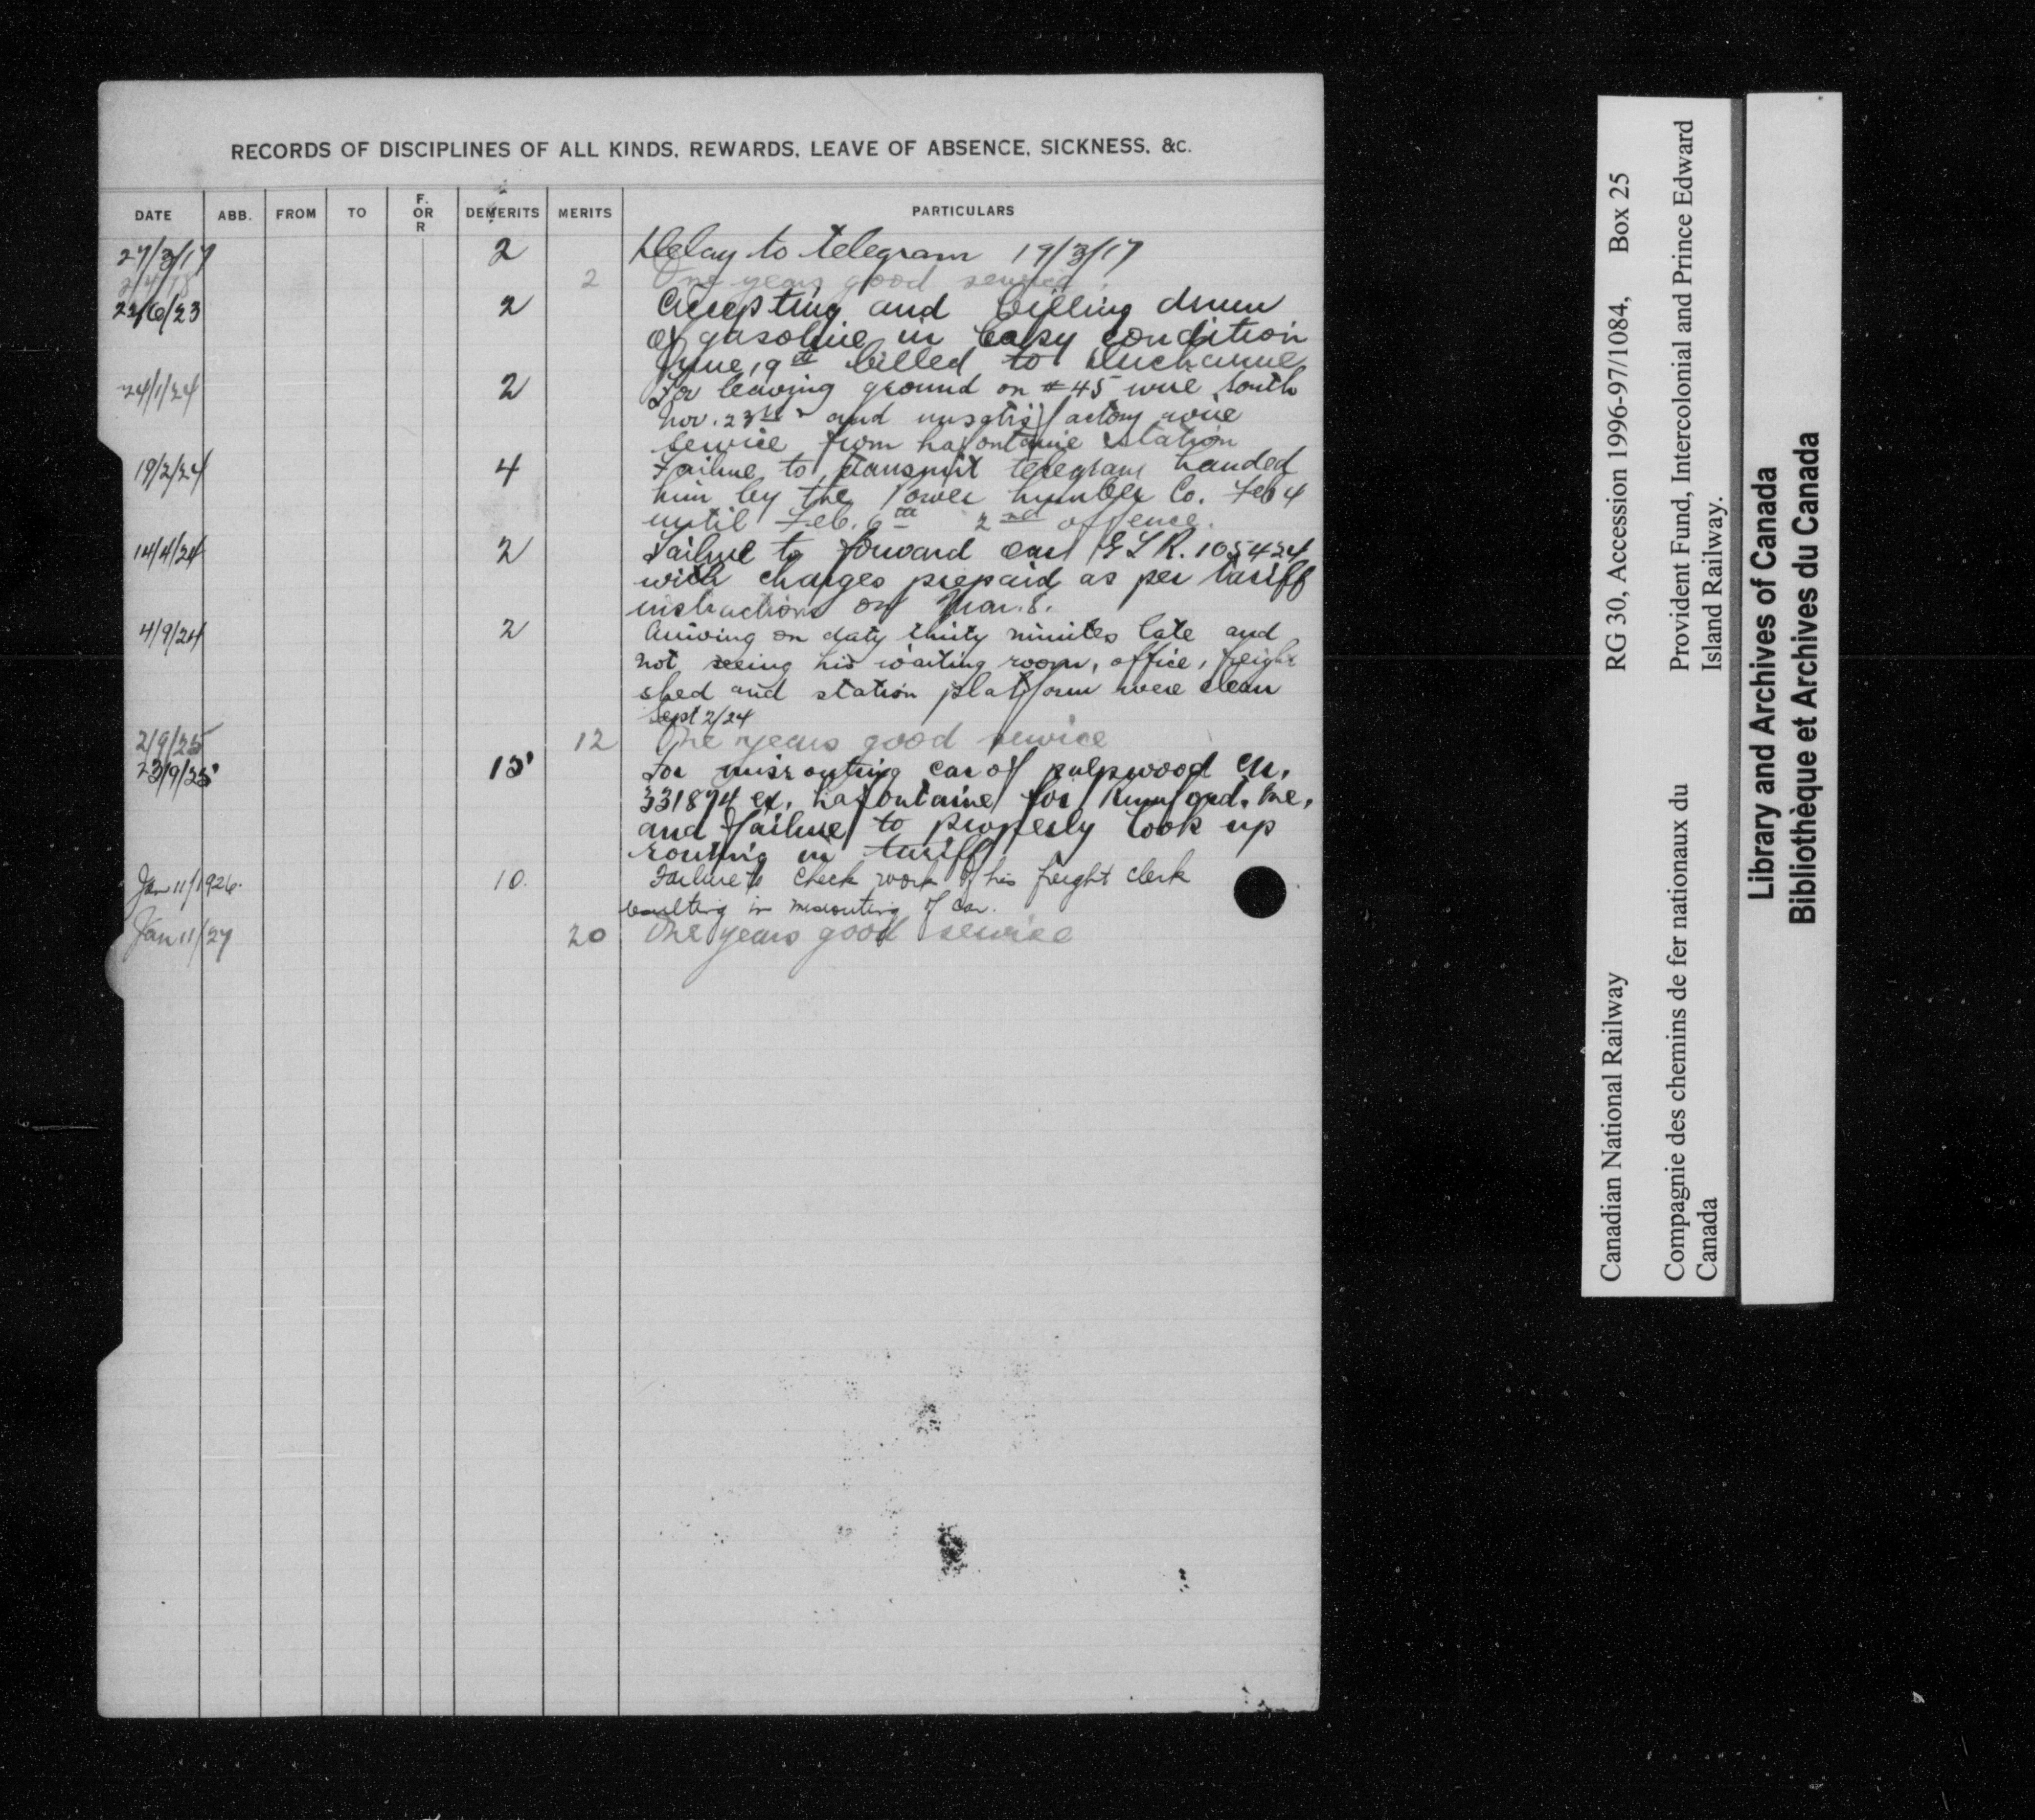 RECORDS OF DISCIPLINES OF ALL KINDS, REWARDS, LEAVE OF ABSENCE, SICKNESS, &C.
DATE ABB. FROM TO F. OR R DEMERITS MERITS PARTICULARS
27/3/17 2 Delay to telegram 19/3/17
2/4/18 2 One years good service
22/6/23 2 Accepting and billing drum
of gasoline in condition
June 19th billed to
24/1/24 2 For leaving ground on #45 wire South
Nov. 23rd and unsatisfactory wire
service from Lafontaine station
19/2/24 4 Failure to transmit telegram handed
him by the Power Lumber Co. Feb 4
until Feb. 6th 2nd offence.
14/4/24 2 Failure to forward car 105424
with charges prepaid as per tariff
instructions on Mar. 8.
4/9/24 2 Arriving on duty thirty minutes late and
not seeing his waiting room, office, freight
shed and station platform were clean
Sept 2/24
2/9/25 12 One years good service
23/9/25 15 For misrouting car of pulpwood CN.
331894 ex. Lafontaine for Rumford, Me,
and failure to properly look up
routing in tariff
Jan 11/1926. 10. Failure to check work of his freight clerk
resulting in misrouting of car.
Jan 11/27 20 One years good service
Canadian National Railway RG 30, Accession 1996-97/1084, Box 25
Compagnie des chemins de fer nationaux du Canada
Provident Fund, Intercolonial and Prince Edward Island Railway.
Library and Archives of Canada
Bibliothèque et Archives du Canada